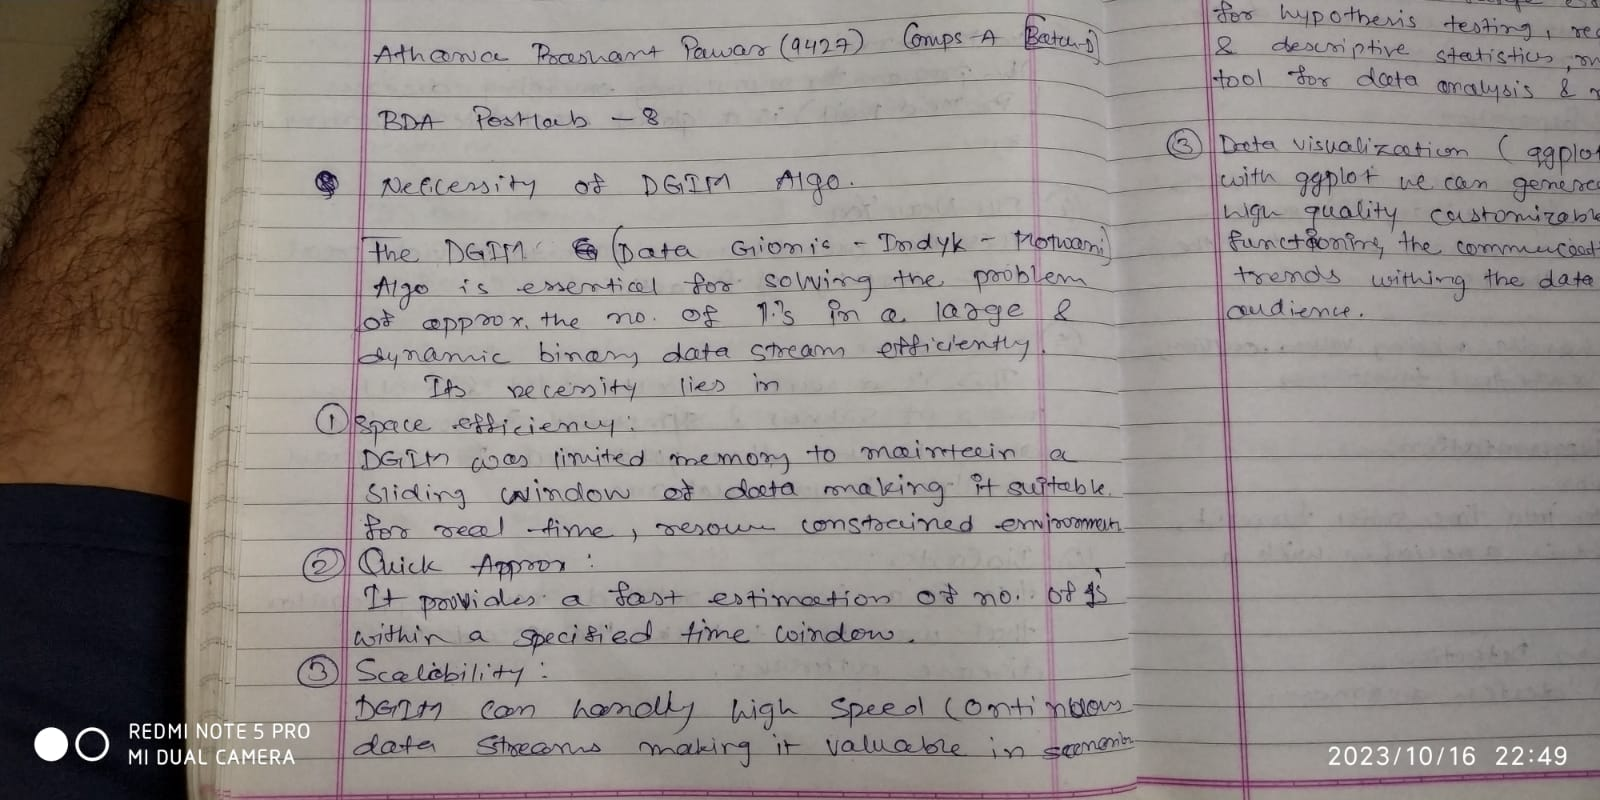 Atharva Prashant Pawar (9427) Comps-A Batch-D
BDA Postlab - 8
Neficessity of DGIM Algo.
The DGIM (Data Gionis - Indyk - Motwani)
Algo is essential for solving the problem
of approx. the no. of 1's in a large &
dynamic binary data stream efficiently.
Its necessity lies in
① Space efficiency:
DGIM was limited memory to maintain a
sliding window of data making it suitable
for real-time, resour constrained environment
② Quick Approx:
It provides a fast estimation of no. of 1s
within a specified time window.
③ Scalability:
DGIM can handly high speed continuous
data streams making it valuable in scenario
for hypothesis testing, re
& descriptive statistics,
tool for data analysis &
③ Data visualization (ggplo
with ggplot we can genera
high quality customizable
the
trends withing the data
audience.
REDMI NOTE 5 PRO
MI DUAL CAMERA
2023/10/16 22:49